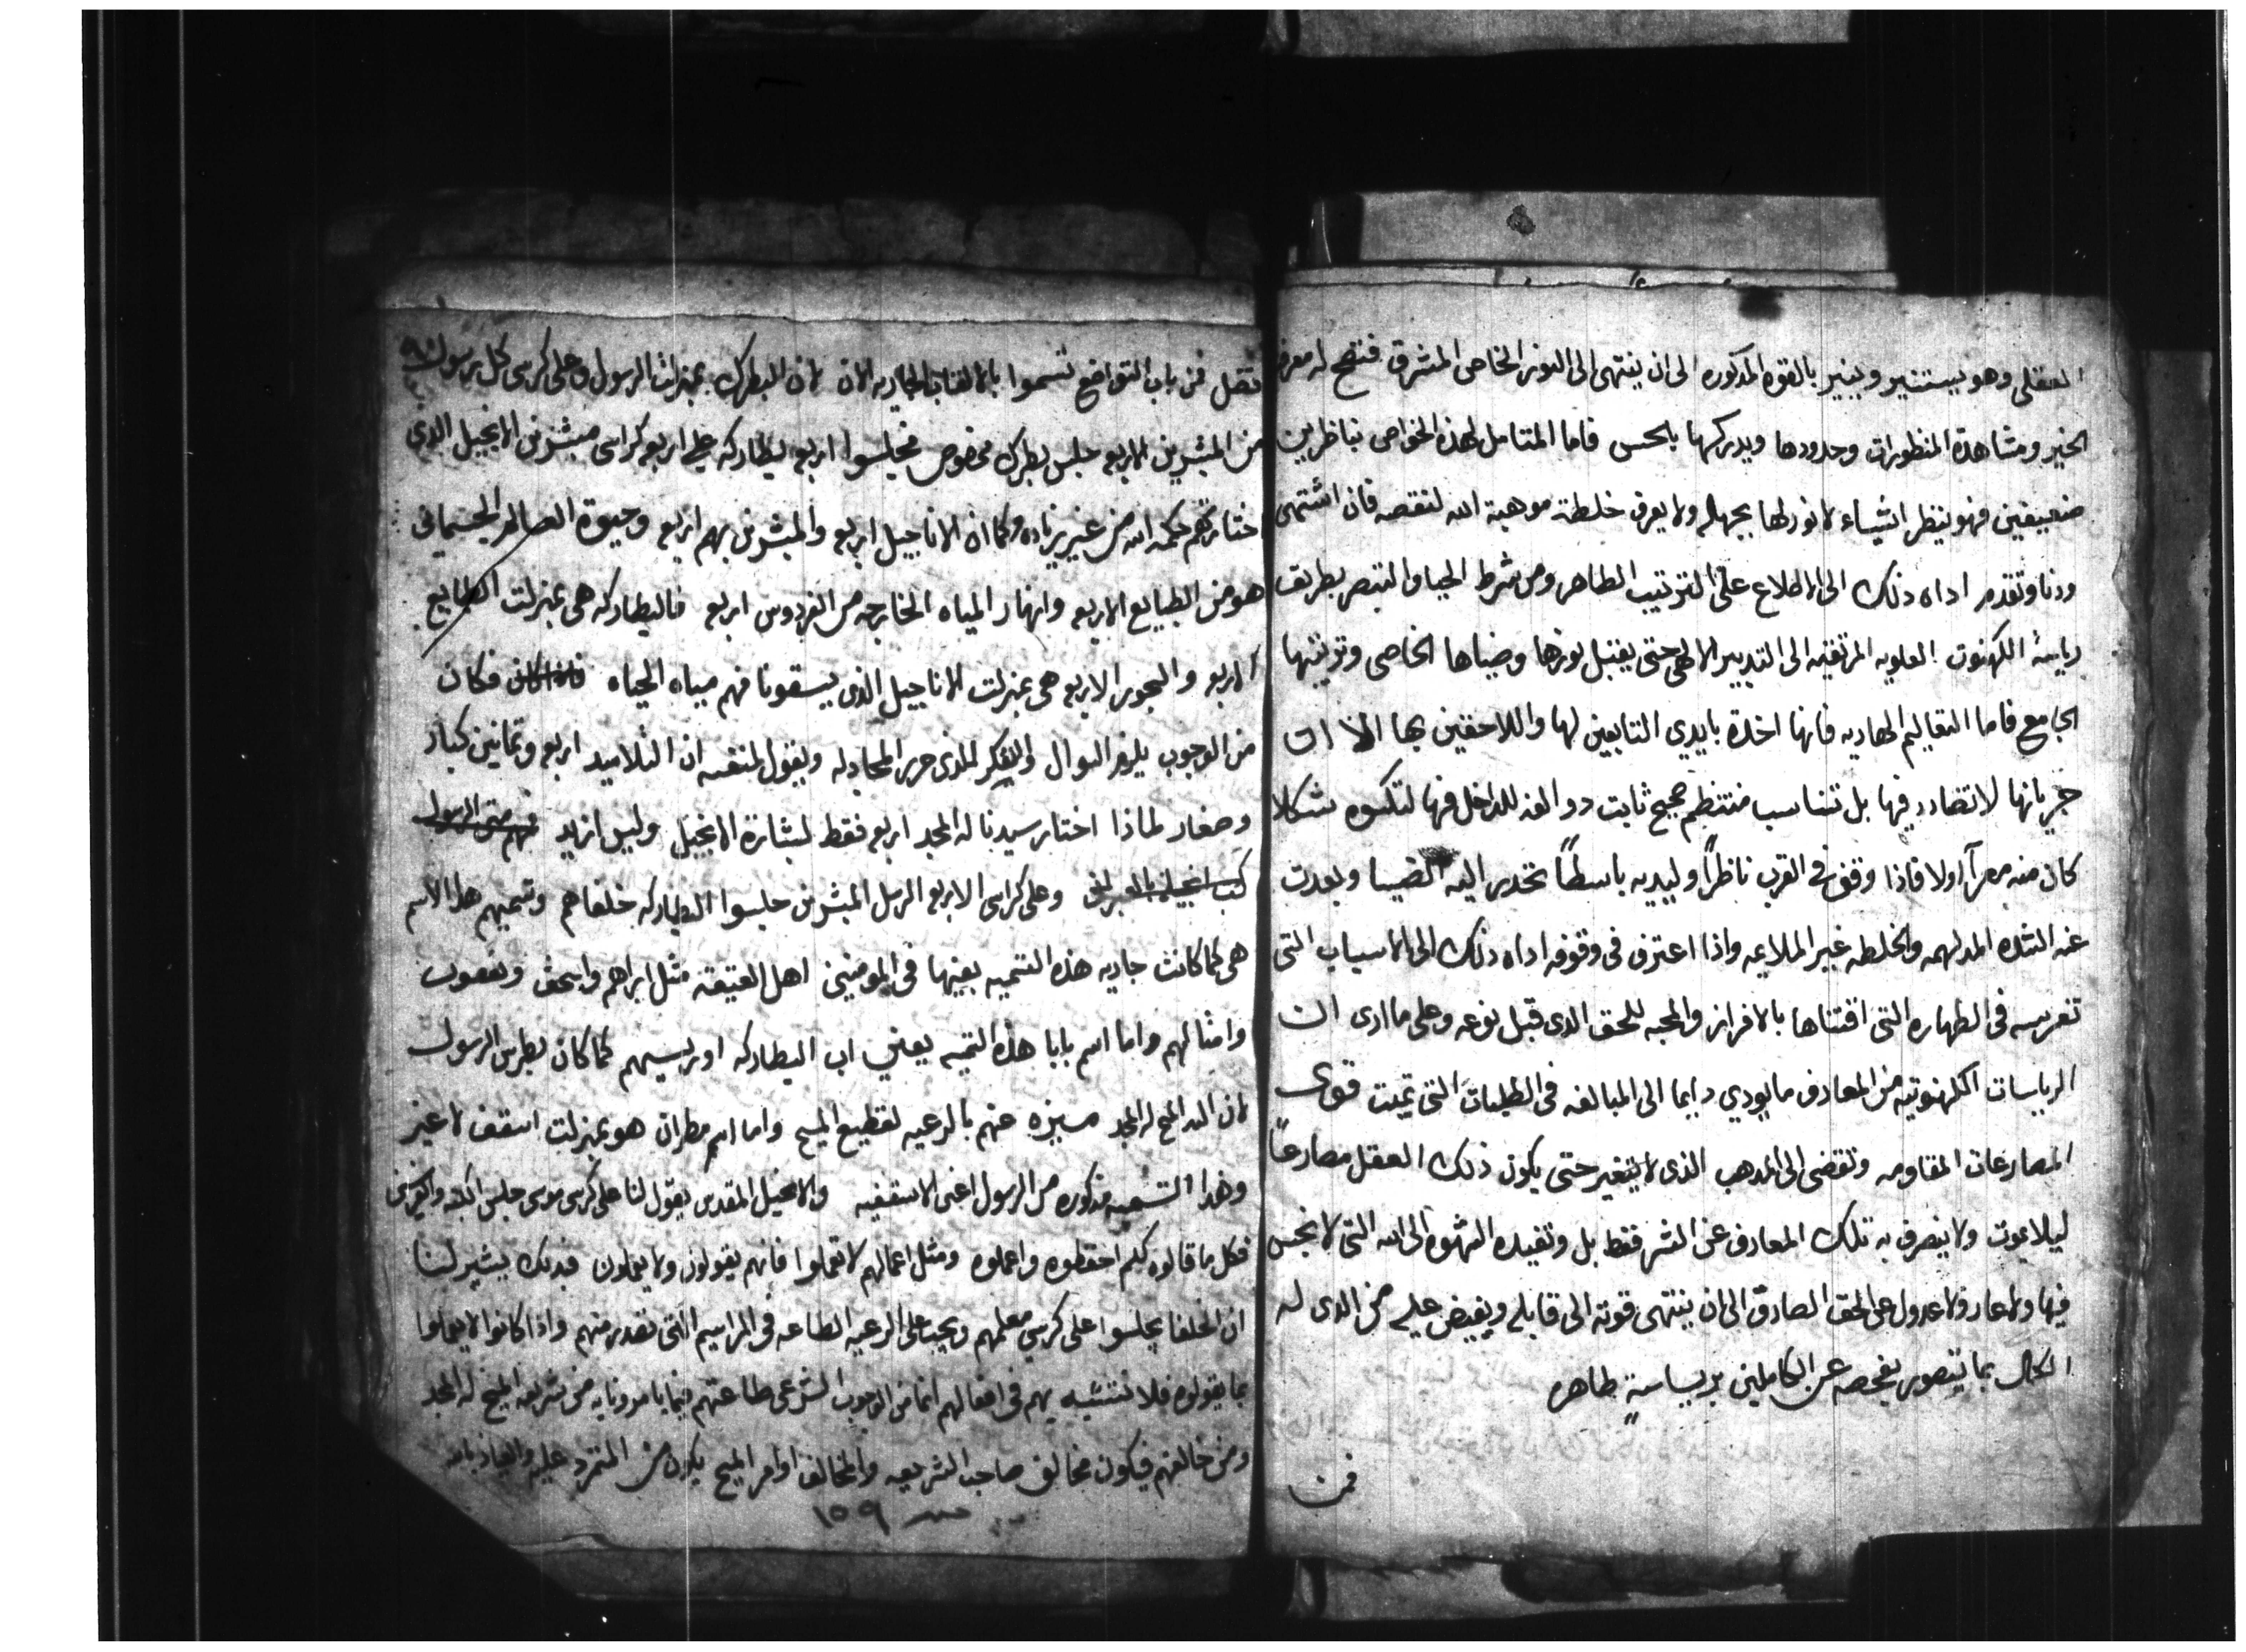 العقلى وهو يستنير وينير بالقوه المذكوره الى ان ينتهى الى النور الخاص المشرق فتصح له معرفة
الخير ومشاهدة المنظورات وحدودها ويدركها بالحس فاما المتامل لهذه الخواص بناظرين
ضعيفين فهو ينظر اشياء لا نور لها بجهله ولا يعرف خلطة موهبة الله لنقصه فان اشتهى
ودنا وتقدم اداه ذلك الى الاطلاع على الترتيب الطاهر ومن شرط الحيا والتبصر بطريق
رياسة الكهنوت العلويه المرتقيه الى التدبير الالهى حتى يقتبل نورها وضياها الخاصى وتزينها
الجامع فاما التعاليم الهاديه فانها اخذة بايدي التابعين لها واللاحقين بها
جريانها لا تضادد فيها بل تناسب منتظم صحيح ثابت للداخل فيها لتكون شكلا
كان منه اولا فاذا وقف فى القرب ناظراً وليديه باسطاً تحدر اليه الضيا وبعدت
عنه الشده المدلهمه والخلطه غير الملايمه واذا اعترف فى وقوفه اداه ذلك الى الاسباب التى
تغريسه فى الطهاره التى اقتناها بالافراز والمحبه للحق الذى قبل نوعه وعلى ما ارى ان
الرياسات الكهنوتيه من المعارف ما يودي دايما الى المبالغه فى الطلبات التى تميت قوى
المصارعات المقاومه وتفضى الى المذهب الذى لا يتغير حتى يكون ذلك العقل مصارعاً
ليلا يموت ولا ينصرف به تلك المعارف عن الشر فقط بل وتفيده الشهوه الى الله التى لا نجس
فيها ولا عار ولا عدول عن الحق الصادق الى ان ينتهى قوته الى قابله ويفيض عليه من الذى له
الكمال بما يتصور بفحصه عن الكاملين برياسةٍ طاهره
فمن
فضل فمن باب التواضع تسموا بالالقاب الجاريه الان لان البطرك بمنزلت الرسول وعلى كرسى كل رسول
من المبشرين الاربعه جلس بطرك مخصوص فجلسوا اربع بطاركه على اربع كراسى مبشرين الانجيل الذي
اختارتهم حكمة الله من غير زياده وكما ان الاناجيل اربع والمبشرين بهم اربع وحيوة العالم الجسمانى
هو من الطبايع الاربعه وانهار المياه الخارجه من الفردوس اربع فالبطاركه هى بمنزلت الطبايع
الاربع والبحور الاربع هى بمنزلت الاناجيل الذى يسقونا منهم مياه الحياه فاذا كان فكان
من الوجوب يلزم السوال والفكر للذى حرر المجادله ويقول لنفسه ان التلاميد اربع وتمانين كبار
وصغار لماذا اختار سيدنا له المجد اربع فقط لبشارة الانجيل وليس ازيد فهم متى الرسول
كتب انجيله بالعبرانى وعلى كراسى الاربع الرسل المبشرين جلسوا البطاركه خلفاهم وتسميهم هذا الاسم
هى كما كانت جاريه هذه التسميه بعينها فى المومنين اهل العتيقه مثل ابراهيم واسحق ويعقوب
وامثالهم واما اسم بابا هذه التسميه يعني اب البطاركه او رييسهم كما كان بطرس الرسول
لان السيد المسيح له المجد ميزه عنهم بالرعيه لقطيع المسيح واما اسم مطران هو بمنزلت اسقف لا غير
وهذا التسميه مذكوره من الرسول اعنى الاسقفيه والانجيل المقدس يقول لنا على كرسى موسى جلس الكتبه والفريسين
فكل ما قالوه لكم احفظوه واعملوه ومثل اعمالهم لا تعملوا فانهم يقولون ولا يعملون فبذلك يشير لنا
ان الخلفا يجلسوا على كرسي معلمهم ويجب على الرعيه الطاعه فى المراسيم التى تصدر منهم واذا كانوا لا يعملوا
بما يقولوه فلا نتشبه بهم فى افعالهم انما من الوجوب الشرعى طاعتهم فيما يامرونا به من شريعة المسيح له المجد
ومن خالفهم فيكون مخالف صاحب الشريعه والمخالف اوامر المسيح يكون من المتمرد عليه والعياذ بالله
١٥٩